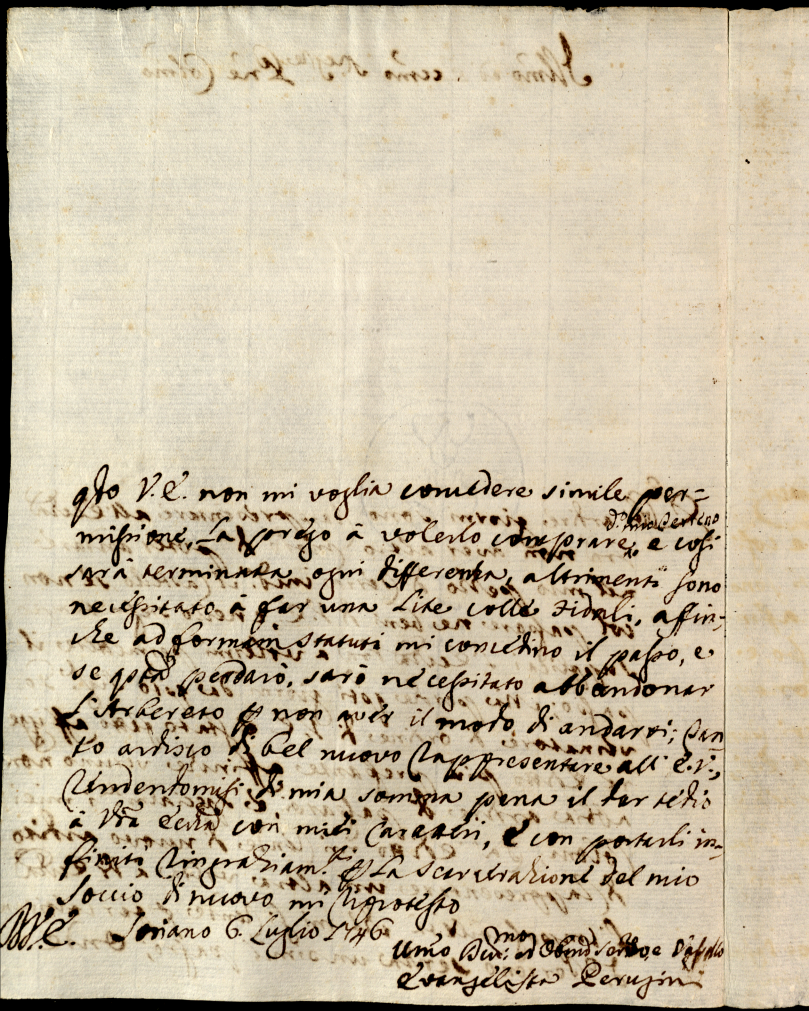 qto V.E. non mi voglia concedere simile per=
missione, La prego à volerlo comprare, e così
d.o mio terreno
sarà terminata ogni differenza, altrimenti sono
necessitato à far una Lite colli Fidoli, affin-
che ad formam statuti mi concedino il passo, e
se questa perdarò, sarò necessitato abbandonar
L'Arbereto p non aver il modo di andarvi; Tan
to ardisco di bel nuovo rappresentare all' E.V.,
rendendomisi di mia somma pena il dar tedio
à Vra Ecc.za con miei Caratteri, e con portarli in-
finiti ringraziam.ti p La Scarcerazione del mio
Soccio di nuovo mi riprotesto
D.V.E. Soriano 6 Luglio 1746
Umo Dev.mo ed Obbmo Servo, e Vassallo
Evangelista Perugini